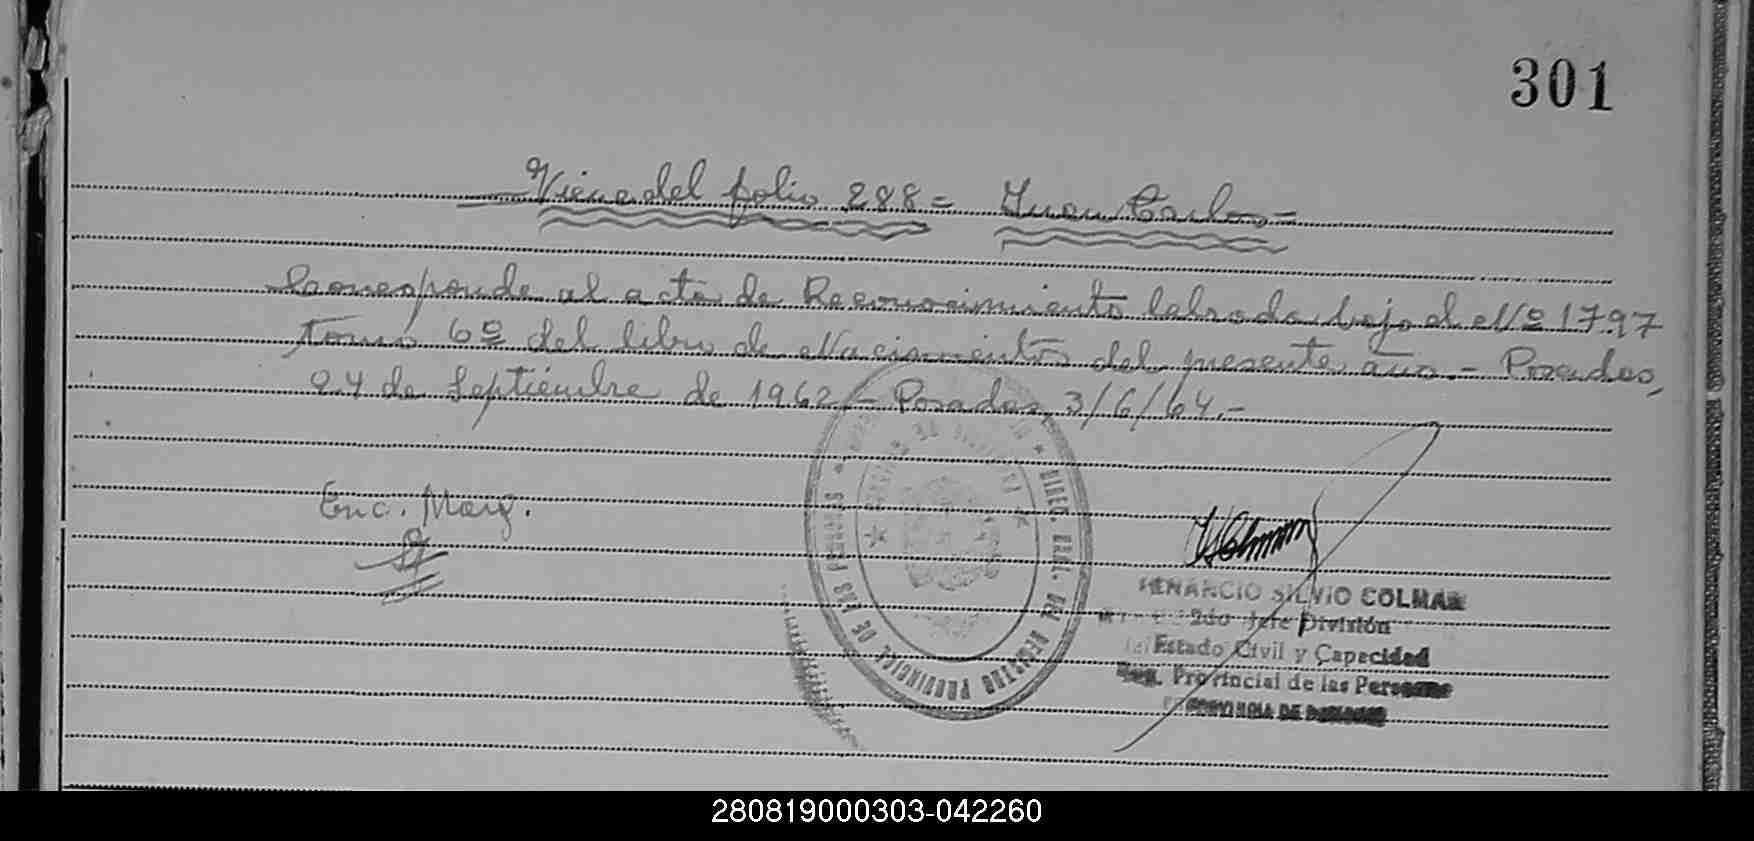 301
Viene del folio 288= Juan Carlos=
Corresponde al acta de Reconocimiento labrada bajo el Nº 1797
tomo 6º del libro de Nacimientos del presente año.- Posadas,
24 de Septiembre de 1962.- Posadas, 3/6/64.-
Enc. Marg.
DIREC. GRAL. DEL REGISTRO PROVINCIAL DE LAS PERSONAS
VENANCIO SILVIO COLMAN
2do Jefe División
Estado Civil y Capacidad
Reg. Provincial de las Personas
PROVINCIA DE MISIONES
280819000303-042260